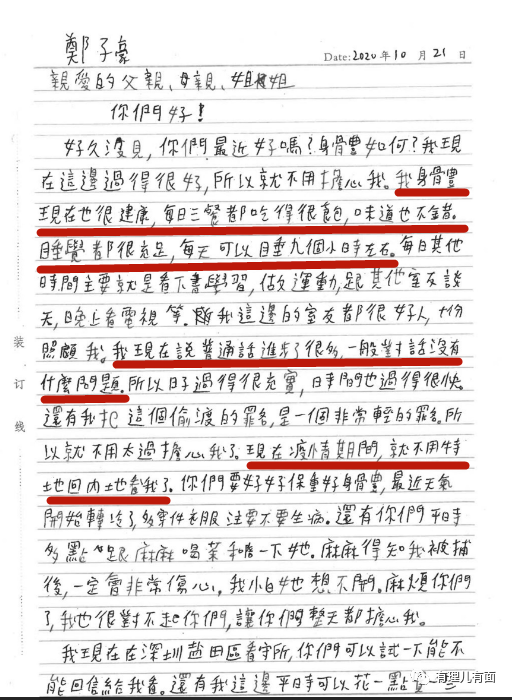 鄭子豪
Date: 2020 年 10 月 21 日
親愛的父親、母親、姐姐
你們好！
好久沒見，你們最近好嗎？身體如何？我現
在這邊過得很好，所以就不用擔心我。我身體
現在也很健康，每日三餐都吃得很飽，味道也不錯。
睡覺都很充足，每天可以睡九個小時左右。每日其他
時間主要就是看下書學習，做久運動，跟其他室友談
天，晚上看電視等。我這邊的室友都很好人，十份
照顧我。我現在説普通話進步了很多，一般對話沒有
什麼問題。所以日子過得很充實，時間也過得很快。
還有我犯這個偷渡的罪名，是一個非常輕的罪名。所
以就不用太過擔心我了。現在疫情期間，就不用特
地回內地看我了。你們要好好保重好身體，最近天氣
開始轉冷了，多穿件衣服注要不要生病。還有你們平時
多點跟麻麻喝茶和一下她。麻麻得知我被捕
後，一定會非常傷心，我小白她想不開。麻煩你們
了，我也很對不起你們，讓你們整天都擔心我。
我現在在深圳鹽田區看守所，你們可以試一下能不
能回信給我看。還有我這邊平日時可以花一點
装
订
线
有理儿有面